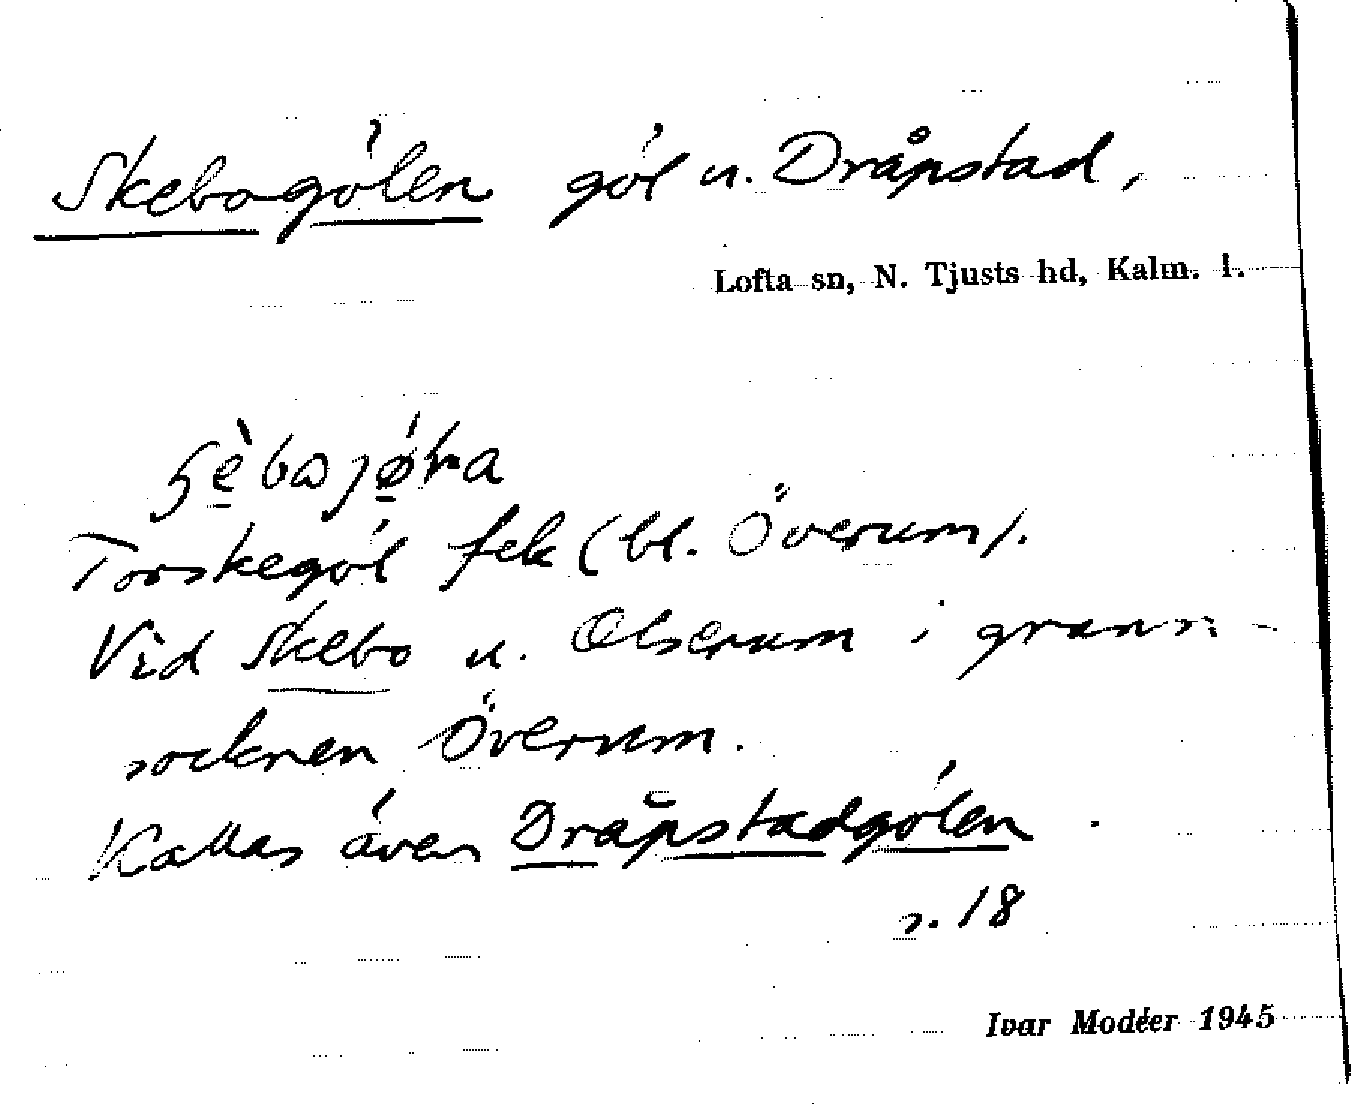 Skebogölen göl u. Dråpstad,
Lofta sn, N. Tjusts hd, Kalm. l.
Torskegöl fek (bl. Överum).
Vid Skebo u. Olserum i grann-
socknen Överum.
Kallas även Dråpstadgölen.
s. 18
Ivar Modéer 1945